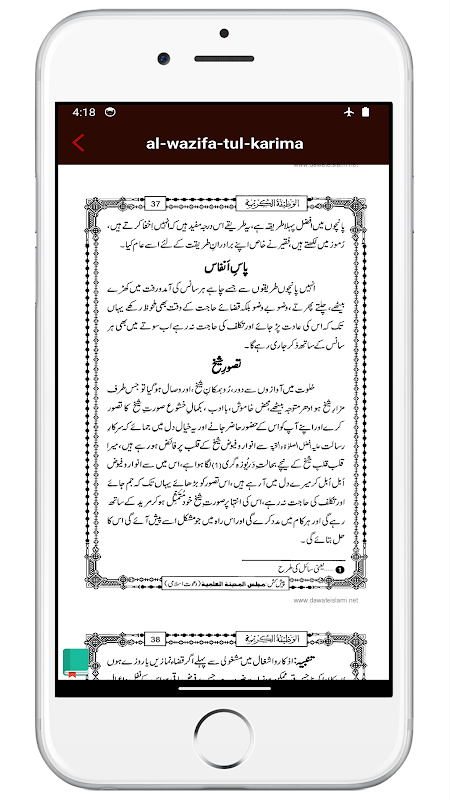 4:18
al-wazifa-tul-karima
www.dawateislami.net
الوظيفة الكريمة
37
پانچوں میں افضل پہلا طریقہ ہے، یہ طریقے اس درجہ مفید ہیں کہ انہیں اِخفا کرتے ہیں،
رُموز میں لکھتے ہیں، فقیر نے خاص اپنے برادرانِ طریقت کے لئے اسے عام کیا۔
پاسِ اَنفاس
انہیں پانچوں طریقوں سے جسے چاہے ہر سانس کی آمد و رفت میں کھڑے
بیٹھے، چلتے پھرتے، وضو بے وضو بلکہ قضائے حاجت کے وقت بھی ملحوظ رکھے یہاں
تک کہ اس کی عادت پڑ جائے اور تکلف کی حاجت نہ رہے اب سوتے میں بھی ہر
سانس کے ساتھ ذکر جاری رہے گا۔
تصورِ شیخ
خلوت میں آوازوں سے دور، رُو بمکانِ شیخ، اور وصال ہو گیا تو جس طرف
مزارِ شیخ ہو ادھر متوجہ بیٹھے محض خاموش، باادب، بکمالِ خشوع صورتِ شیخ کا تصور
کرے اور اپنے آپ کو اس کے حضور حاضر جانے اور یہ خیال دل میں جمائے کہ سرکارِ
رسالت علیہ افضل الصلوٰۃ والتحیۃ سے انوار و فیوض شیخ کے قلب پر فائض ہو رہے ہیں، میرا
قلب قلبِ شیخ کے نیچے بحالتِ دَرْیُوزہ گری (۱) لگا ہوا ہے، اس میں سے انوار و فیوض
اُبل اُبل کر میرے دل میں آ رہے ہیں، اس تصور کو بڑھائے یہاں تک کہ جم جائے
اور تکلف کی حاجت نہ رہے، اس کی انتہا پر صورتِ شیخ خود مُتَمَثِّل ہو کر مرید کے ساتھ
رہے گی اور ہر کام میں مدد کرے گی اور اس راہ میں جو مشکل اسے پیش آئے گی اس کا
حل بتائے گی۔
1 ..... یعنی سائل کی طرح
پیش کش: مجلس المدينة العلمية (دعوتِ اسلامی)
www.dawateislami.net
الوظيفة الكريمة
38
تنبیہ: اذکار و اشغال میں مشغولی سے پہلے اگر قضاء نمازیں یا روزے ہوں